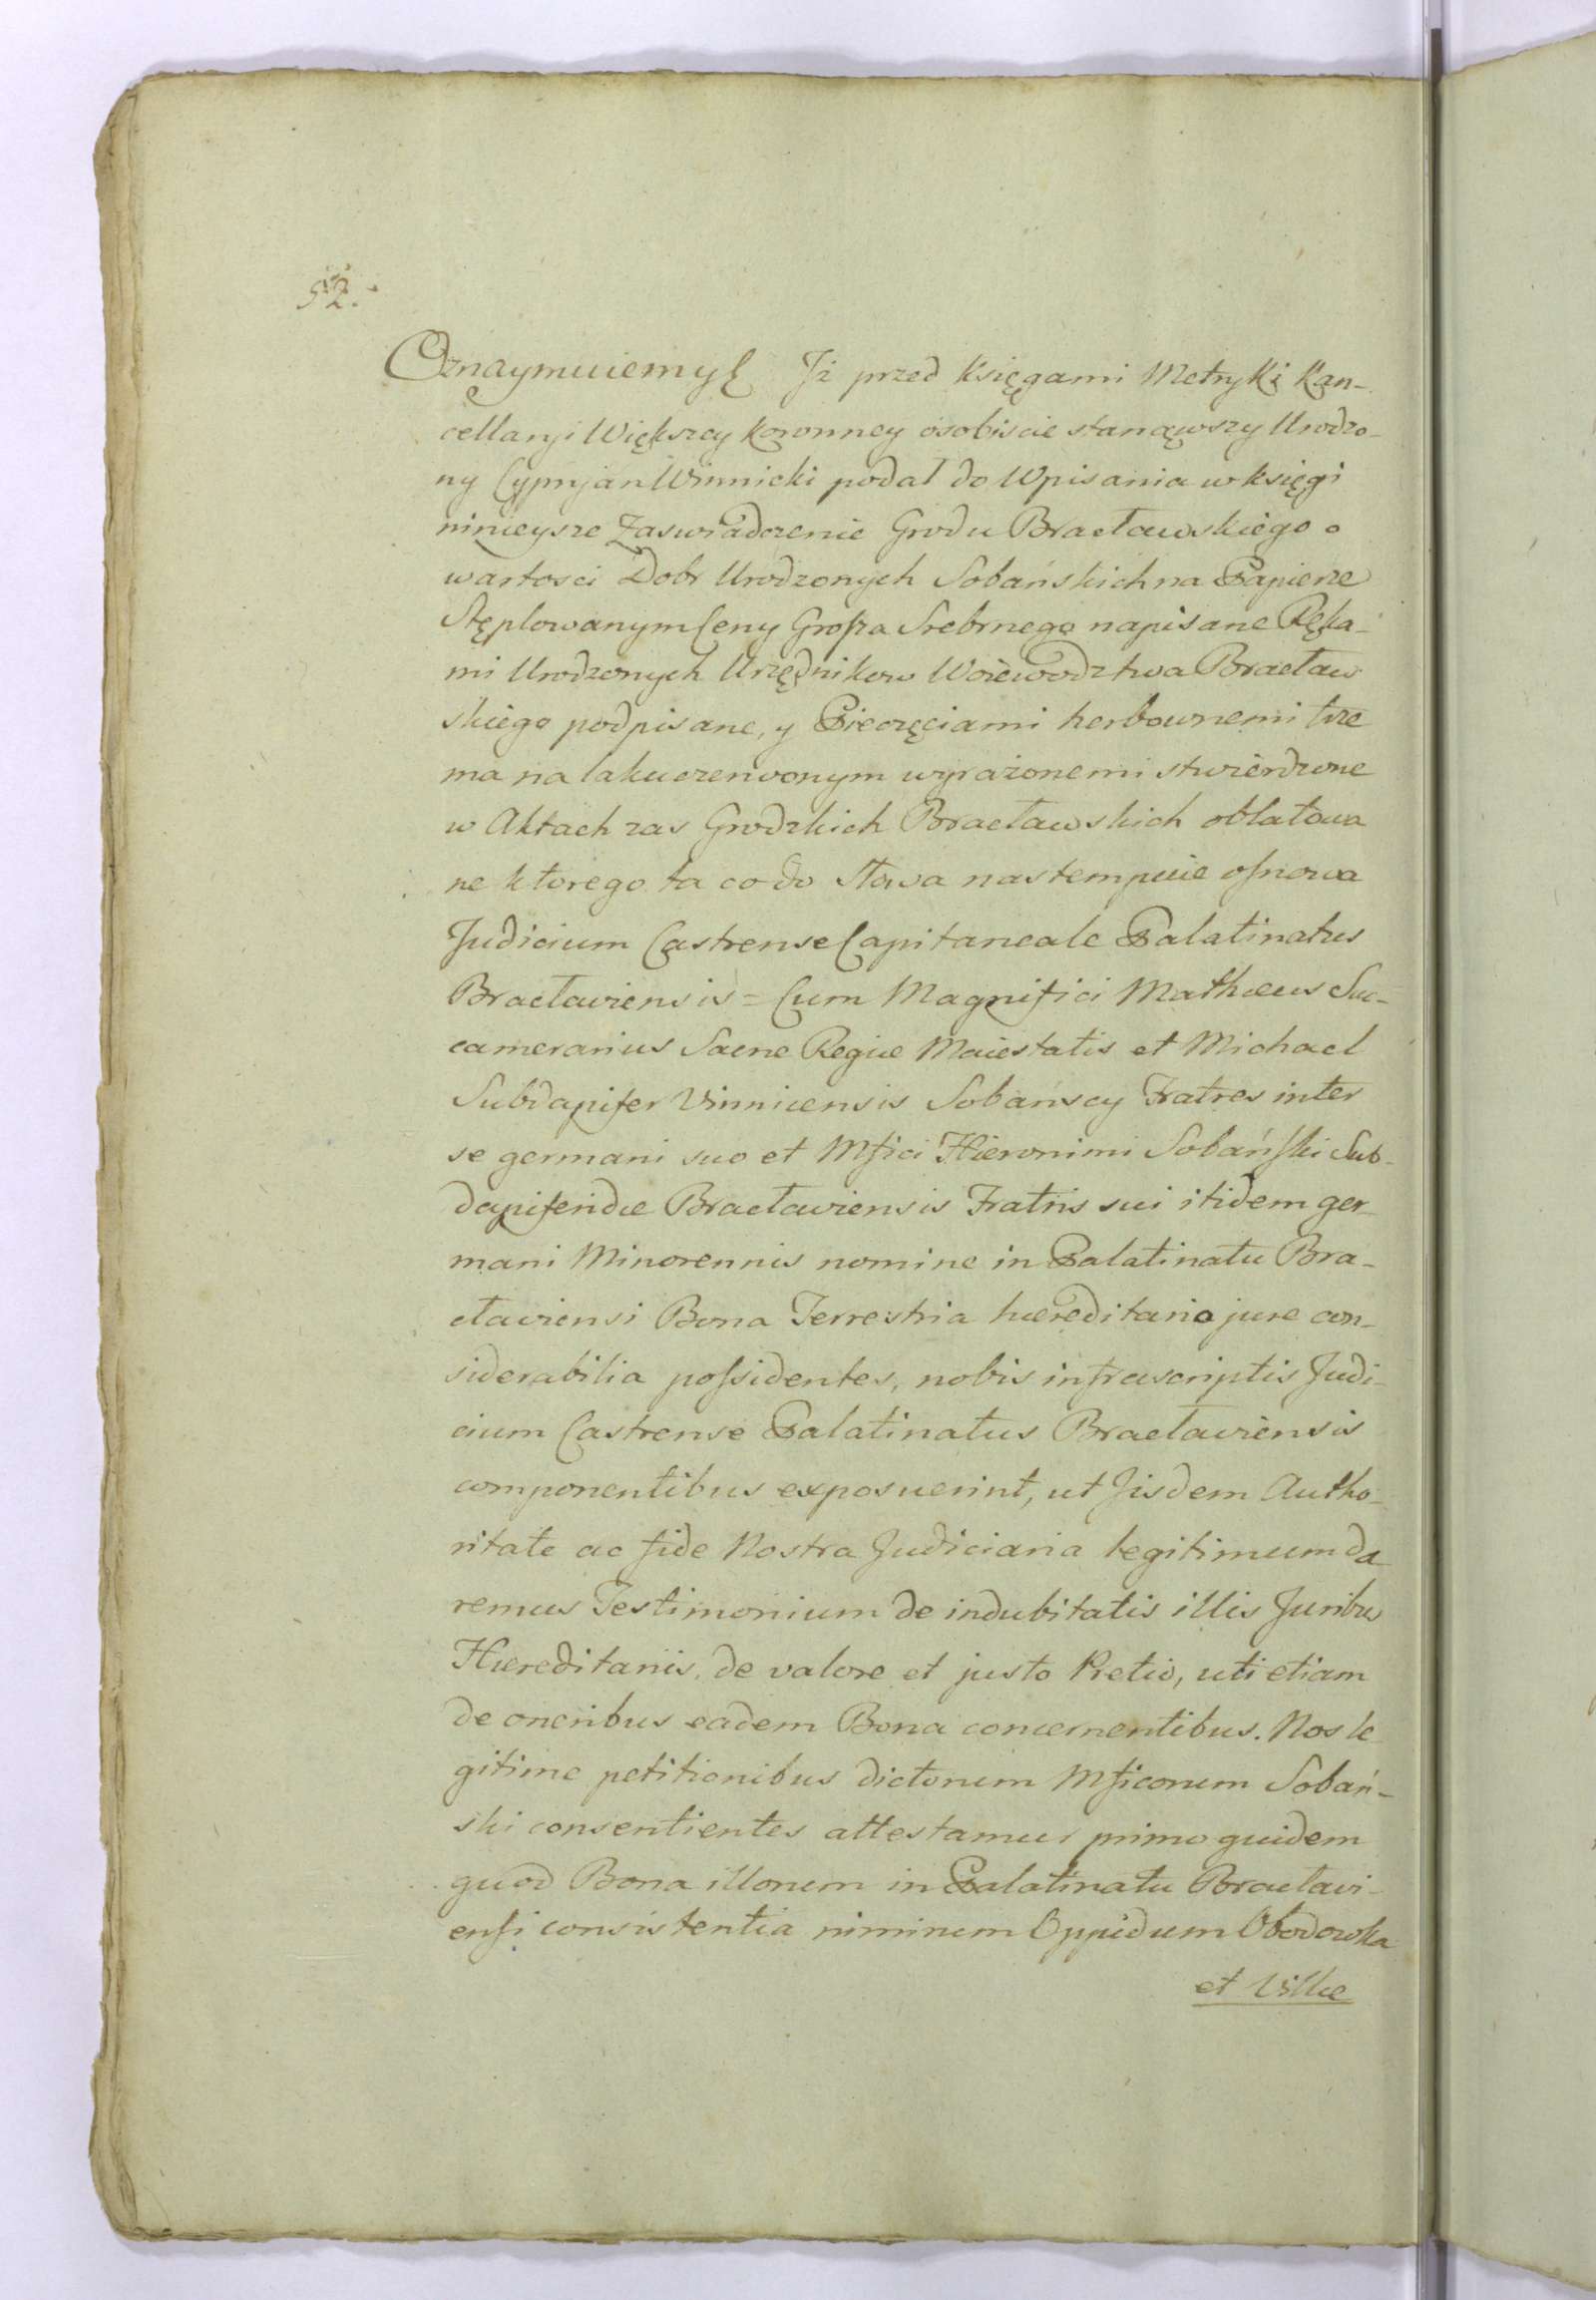 52.
Oznaymuiemy Iż przed Księgami Metryki Kan-
cellaryi Większey Koronney osobiscie stanąwszy Urodzo-
ny Cypryjan Winnicki podał do Wpisania w księgi
ninieysze Zaswiadczenie Grodu Bracławskiego o
wartosci Dobr Urodzonych Sobańskich na Papierze
Stęplowanym Ceny Grosza Srebrnego napisane Ręka-
mi Urodzonych Urzędnikow Woiewodztwa Bracław
skiego podpisane, y Pieczęciami herbownemi trze
ma na laku czerwonym wyrażonemi stwierdzone
w Aktach zas Grodzkich Bracławskich oblatowa
ne ktorego ta co do słowa nastempuie osnowa
Judicium Castrense Capitaneale Palatinatus
Bracłaviensis = Cum Magnifici Mathæus Suc-
camerarius Sacræ Regiæ Maiestatis et Michael
Subdapifer Vinnicensis Sobańscy Fratres inter
se germani suo et Mfici Hieronimi Sobański Sub-
dapiferidæ Bracłaviensis Fratris sui itidem ger
mani Minorennis nomine in Palatinatu Bra-
cłaviensi Bona Terrestria hæreditario jure con-
siderabilia possidentes, nobis infrascriptis Judi-
cium Castrense Palatinatus Bracłaviensis
componentibus exposuerint, ut Jisdem Autho-
ritate ac fide Nostra Judiciaria legitimum da
remus Testimonium de indubitatis illis Juribus
Hæreditariis, de valore et justo Pretio, uti etiam
de oneribus eadem Bona concernentibus. Nos le
gitime petitionibus dictorum Mficorum Sobań-
ski consentientes attestamur primo quidem
quod Bona illorum in Palatinatu Bracłavi-
ensi consistentia nimirum Oppidum Obodowka
et Villæ